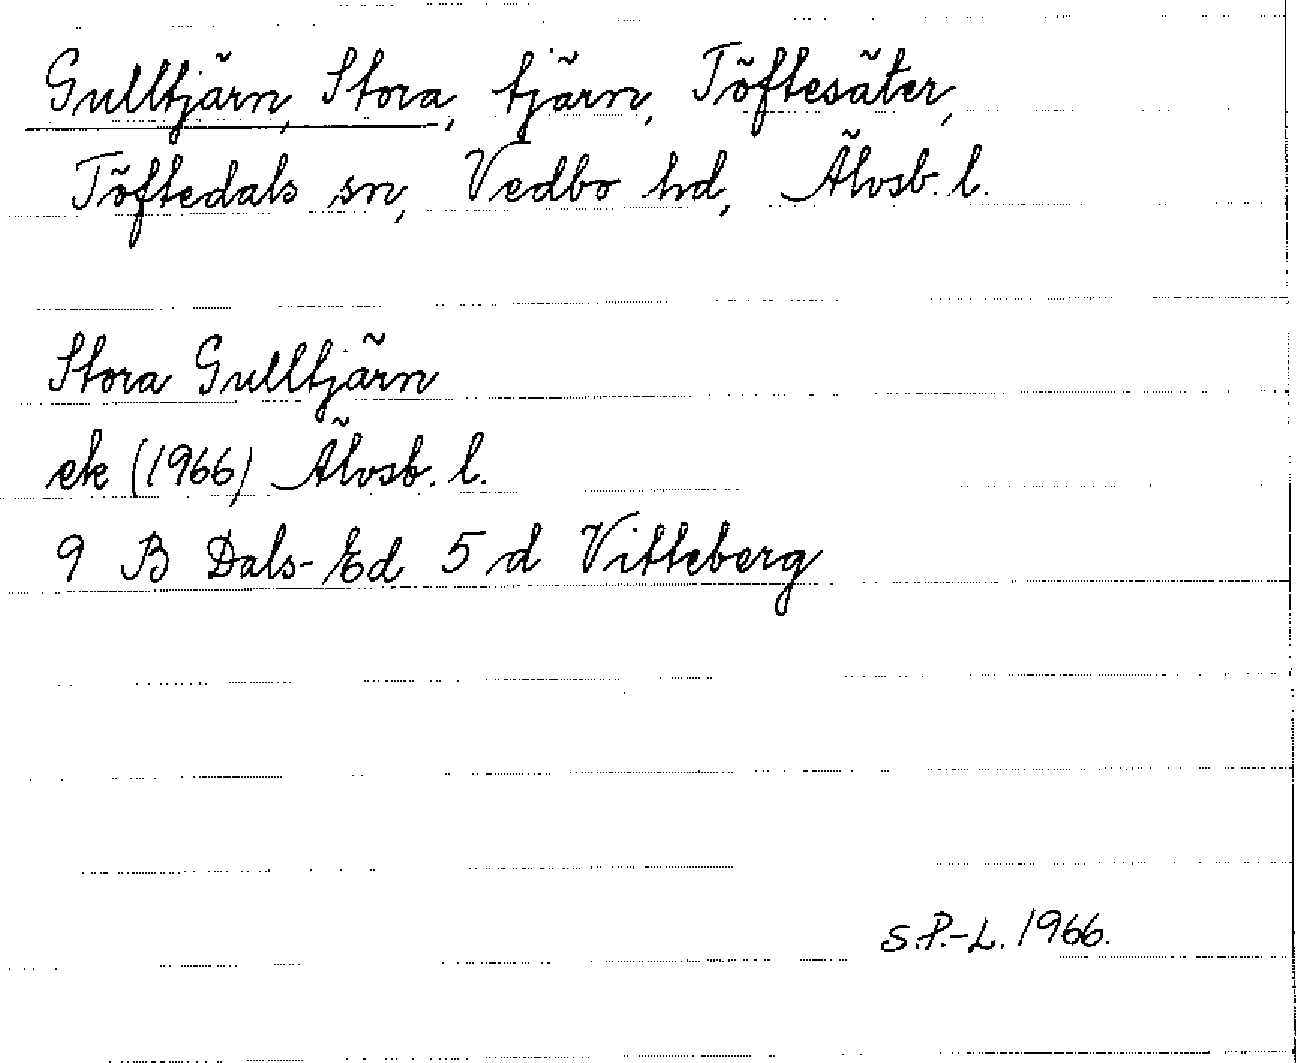 Gulltjärn, Stora, tjärn, Töftesäter,
Töftedals sn, Vedbo hd, Älvsb. l.
Stora Gulltjärn
ek (1966) Älvsb. l.
9 B Dals-Ed 5 d Vitteberg
S.P.-L. 1966.